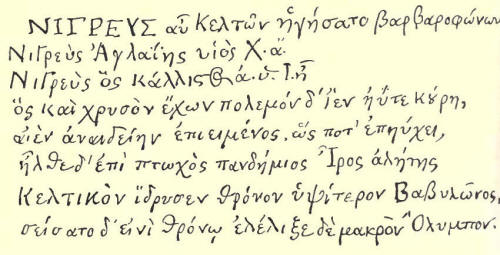 ΝΙΓΡΕΥΣ αὖ Κελτῶν ἡγήσατο βαρβαροφώνων
Νιγρεὺς Ἀγλαΐης υἱὸς Χ. ἄ.
Νιγρεὺς ὃς κάλλισ ἀ. ὑ. Ἰ. ἦ
ὃς καὶ χρυσὸν ἔχων πολεμόνδ' ἴεν ἠΰτε κύρη,
αἰὲν ἀναιδείην ἐπιειμένος, ὥς ποτ' ἐπηύχει,
ἦλθε δ' ἐπὶ πτωχὸς πανδήμιος Ἶρος ἀλήτης
Κελτικὸν ἵδρυσεν θρόνον ὑψίτερον Βαβυλῶνος,
σείσατο δ' εἰνὶ θρόνῳ ἐλέλιξε δὲ μακρὸν Ὄλυμπον.